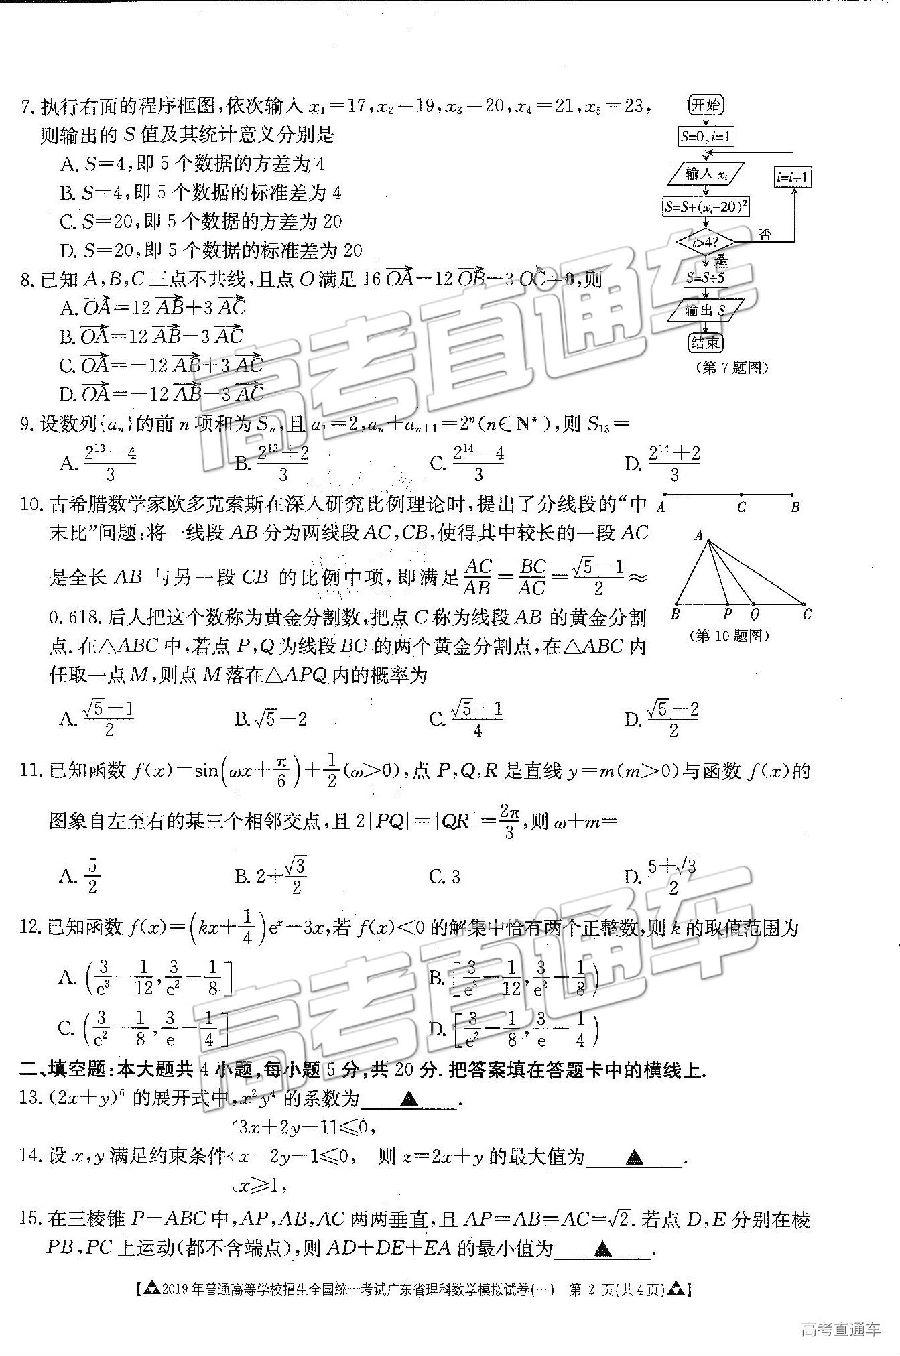 7. 执行右面的程序框图,依次输入 x₁=17,x₂=19,x₃=20,x₄=21,x₅=23,
则输出的 S 值及其统计意义分别是
A. S=4,即 5 个数据的方差为 4
B. S=4,即 5 个数据的标准差为 4
C. S=20,即 5 个数据的方差为 20
D. S=20,即 5 个数据的标准差为 20
开始
S=0,i=1
输入 xᵢ
i=i+1
S=S+(xᵢ-20)²
i>4?
否
是
S=S÷5
输出 S
结束
(第 7 题图)
8. 已知 A,B,C 三点不共线,且点 O 满足 16OA−12OB−3OC=0,则
A. OA=12AB+3AC
B. OA=12AB−3AC
C. OA=−12AB+3AC
D. OA=−12AB−3AC
9. 设数列{aₙ}的前 n 项和为 Sₙ,且 a₁=2,aₙ+aₙ₊₁=2ⁿ(n∈N*),则 S₁₃=
A. (2¹³−4)/3 B. (2¹³+2)/3 C. (2¹⁴−4)/3 D. (2¹⁴+2)/3
10. 古希腊数学家欧多克索斯在深入研究比例理论时,提出了分线段的“中
末比”问题:将一线段 AB 分为两线段 AC,CB,使得其中较长的一段 AC
是全长 AB 与另一段 CB 的比例中项,即满足 AC/AB=BC/AC=(√5−1)/2≈
0.618. 后人把这个数称为黄金分割数,把点 C 称为线段 AB 的黄金分割
点. 在△ABC 中,若点 P,Q 为线段 BC 的两个黄金分割点,在△ABC 内
任取一点 M,则点 M 落在△APQ 内的概率为
A C B
A
B P Q C
(第 10 题图)
A. (√5−1)/2 B. √5−2 C. (√5−1)/4 D. (√5−2)/2
11. 已知函数 f(x)=sin(ωx+π/6)+1/2(ω>0),点 P,Q,R 是直线 y=m(m>0)与函数 f(x)的
图象自左至右的某三个相邻交点,且 2|PQ|=|QR|=2π/3,则 ω+m=
A. 5/2 B. 2+√3/2 C. 3 D. (5+√3)/2
12. 已知函数 f(x)=(kx+1/4)eˣ−3x,若 f(x)<0 的解集中恰有两个正整数,则 k 的取值范围为
A. (3/e³−1/12,3/e²−1/8] B. [3/e³−1/12,3/e²−1/8)
C. (3/e²−1/8,3/e−1/4] D. [3/e²−1/8,3/e−1/4)
二、填空题:本大题共 4 小题,每小题 5 分,共 20 分. 把答案填在答题卡中的横线上.
13. (2x+y)⁶ 的展开式中,x²y⁴ 的系数为 ▲ .
14. 设 x,y 满足约束条件{3x+2y−11≤0, x−2y−1≤0, x≥1, 则 z=2x+y 的最大值为 ▲ .
15. 在三棱锥 P−ABC 中,AP,AB,AC 两两垂直,且 AP=AB=AC=√2. 若点 D,E 分别在棱
PB,PC 上运动(都不含端点),则 AD+DE+EA 的最小值为 ▲ .
【▲2019 年普通高等学校招生全国统一考试广东省理科数学模拟试卷(一) 第 2 页(共 4 页)▲】
高考直通车
高考直通车
高考直通车